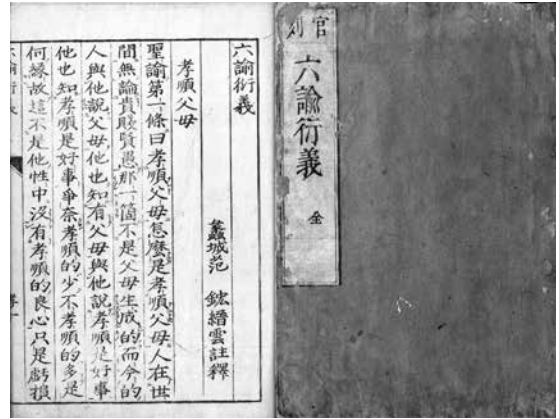 官刻
六諭衍義 全
六諭衍義
蠡城范 鋐縉雲註釋
孝順父母
聖諭第一條曰孝順父母怎麼是孝順父母人在世
間無論貴賤賢愚那一箇不是父母生成的而今的
人與他說父母他也知有父母與他說孝順是好事
他也知孝順是好事爭奈孝順的少不孝順的多是
何緣故這不是他性中沒有孝順的良心只是虧損
六諭衍